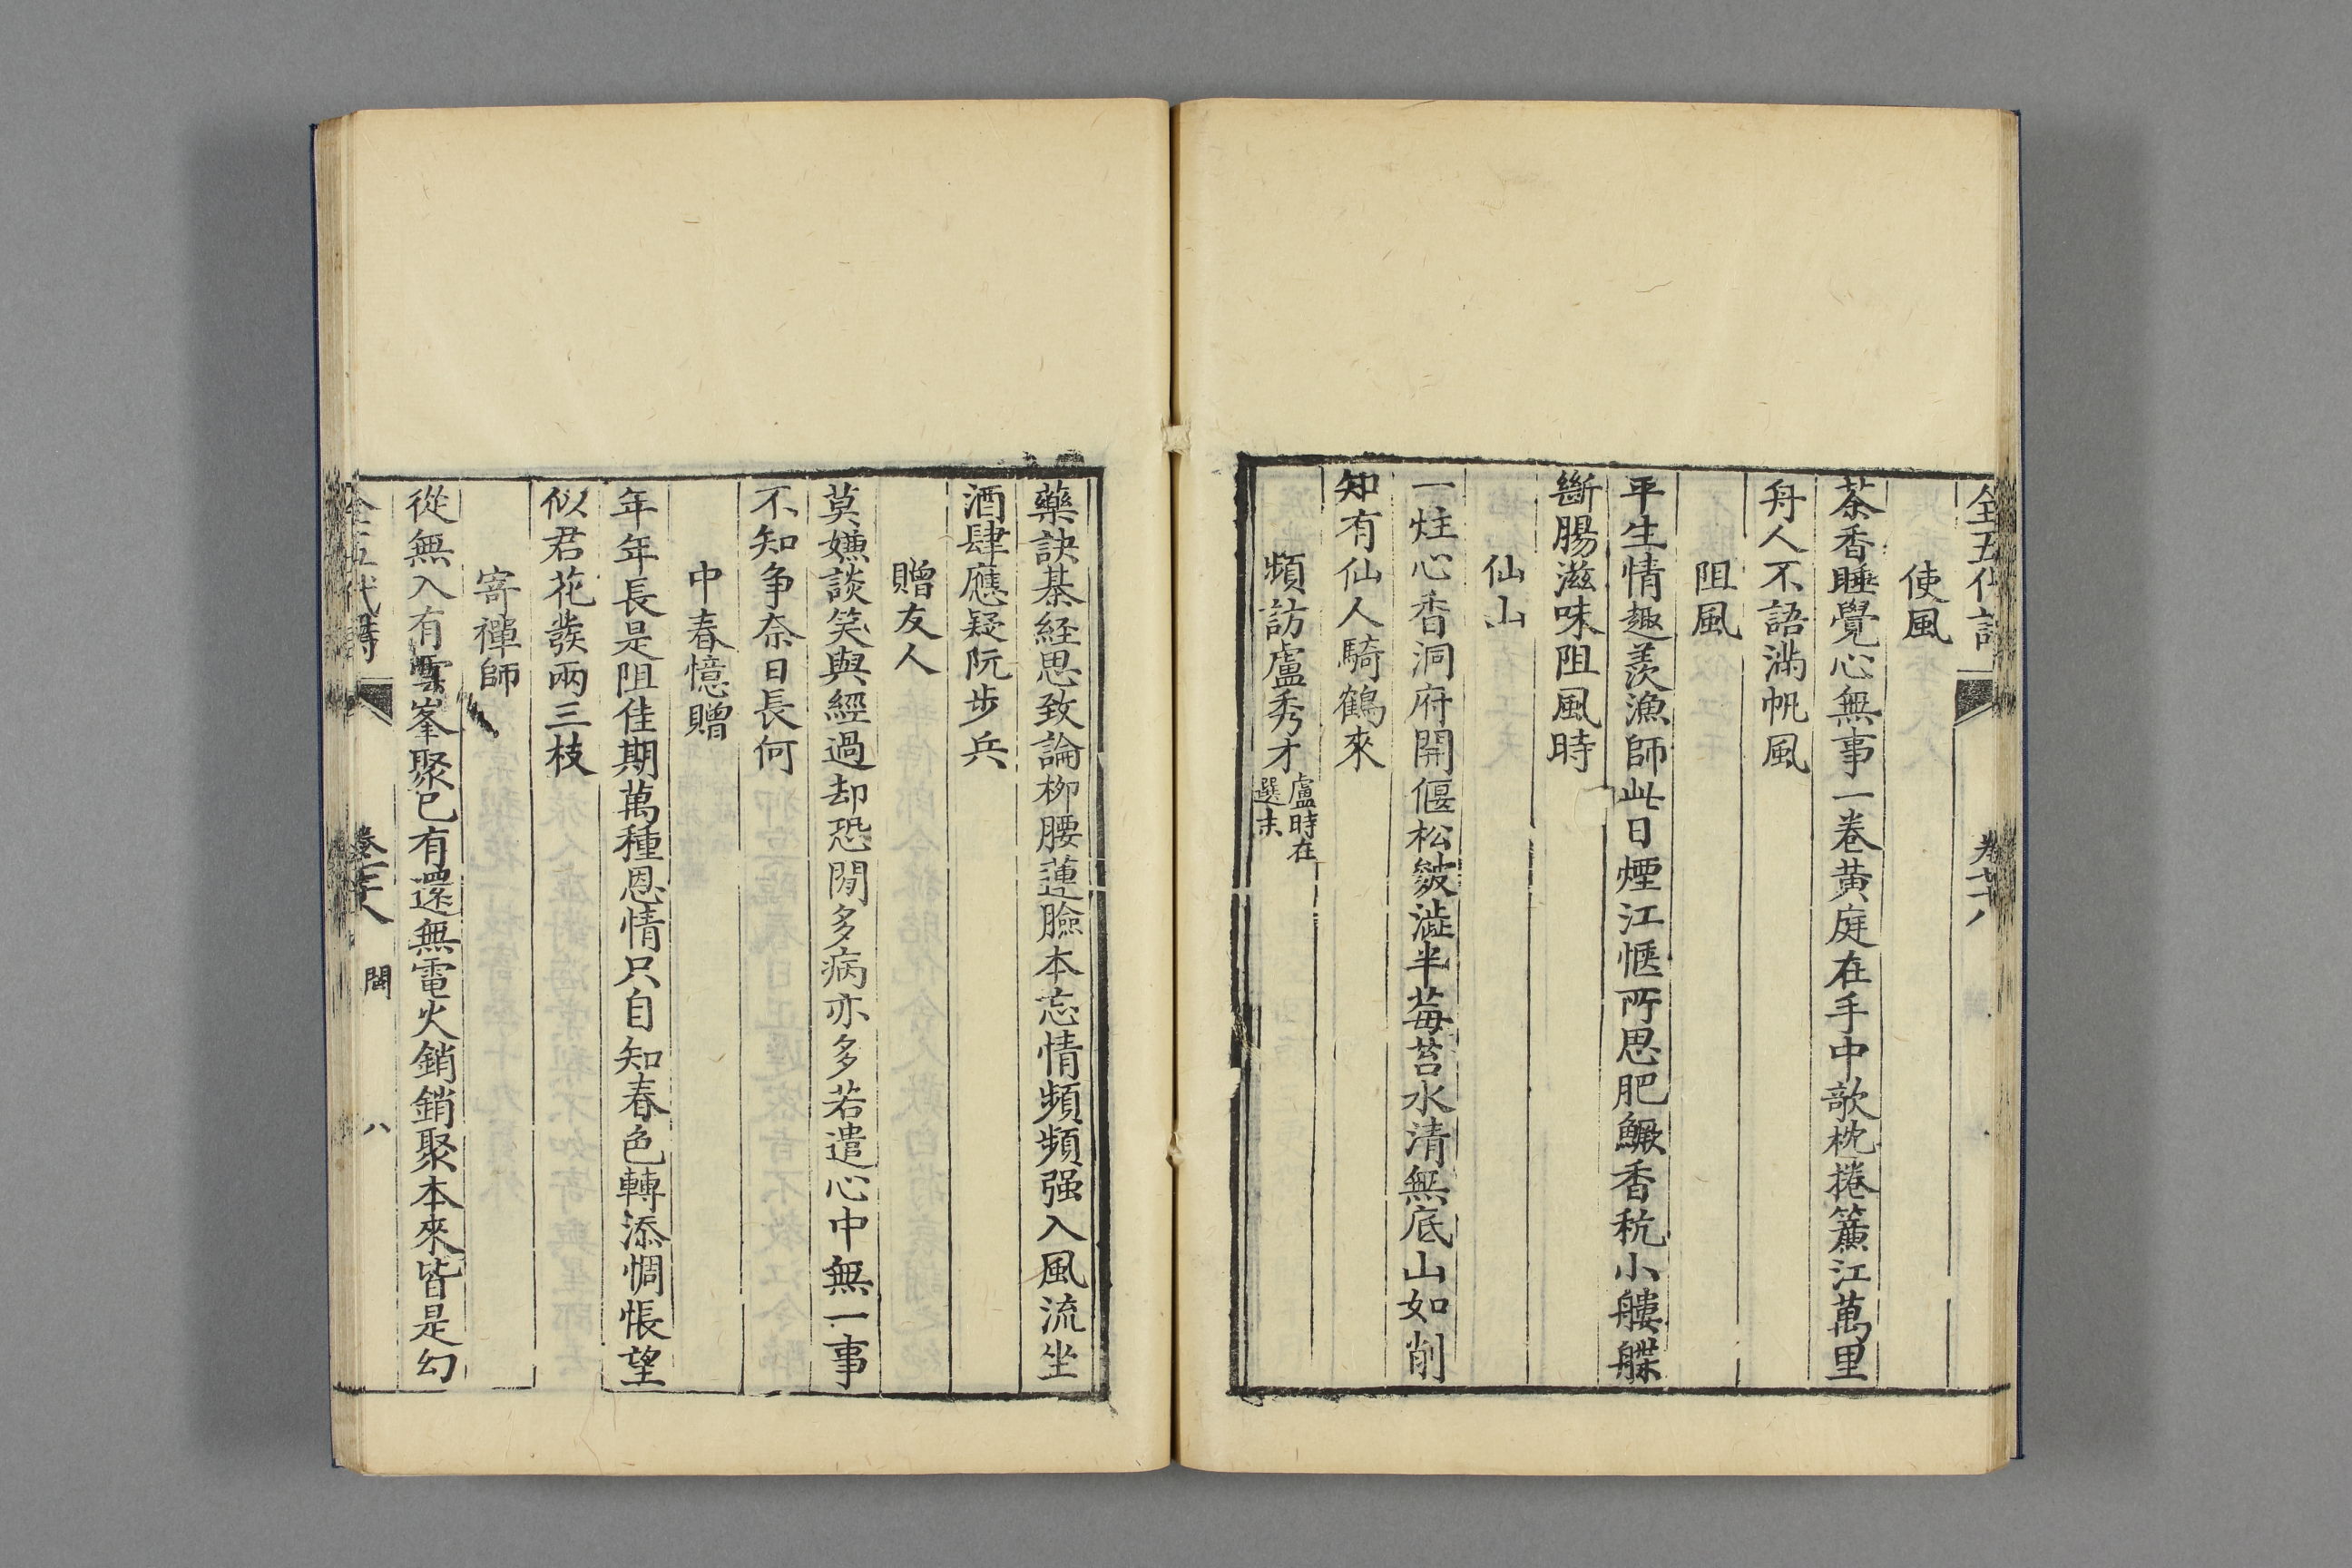 全五代詩 卷七十八
使風
茶香睡覺心無事一卷黄庭在手中欹枕捲簾江萬里
舟人不語滿帆風
阻風
平生情趣羨漁師此日煙江愜所思肥鱖香秔小艛艓
斷腸滋味阻風時
仙山
一炷心香洞府開偃松皴澁半莓苔水清無底山如削
知有仙人騎鶴來
頻訪盧秀才盧時在
選末
藥訣棊經思致論柳腰蓮臉本忘情頻頻强入風流坐
酒肆應疑阮步兵
贈友人
莫嫌談笑與經過却恐閒多病亦多若遣心中無一事
不知争奈日長何
中春憶贈
年年長是阻佳期萬種恩情只自知春色轉添惆悵望
似君花發兩三枝
寄禪師
從無入有雲峯聚已有還無電火銷銷聚本來皆是幻
全五代詩 卷七十八 閩 八